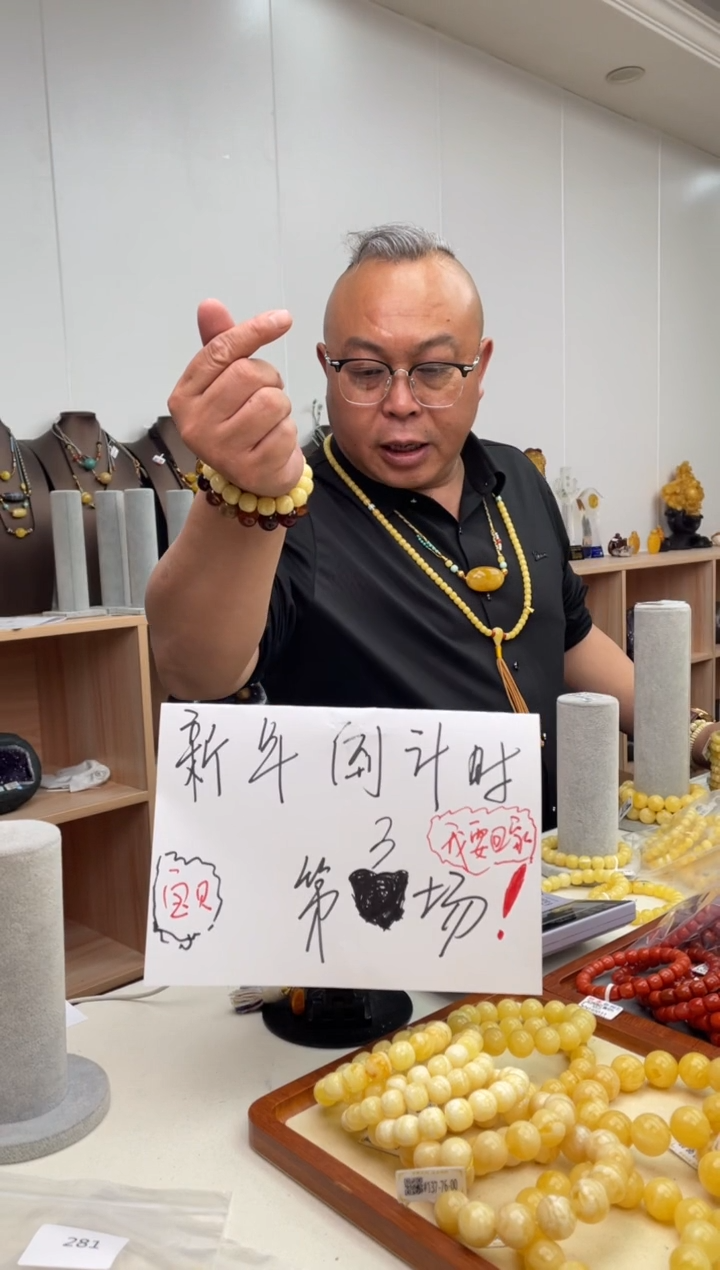 新年倒计时
3
我要回家
宝贝
第 场!
#137-76-00
281